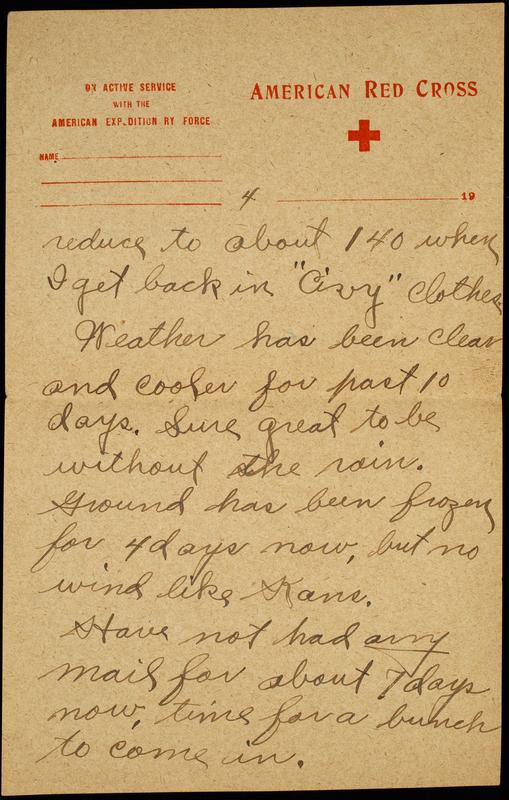 ON ACTIVE SERVICE
WITH THE
AMERICAN EXPEDITION RY FORCE
NAME
AMERICAN RED CROSS
19
4
reduce to about 140 when
I get back in "Civy" clothes
Weather has been clear
and cooler for past 10
days. Sure great to be
without the rain.
Ground has been frozen
for 4 days now, but no
wind like Kans.
Have not had any
mail for about 7 days
now, time for a bunch
to come in.